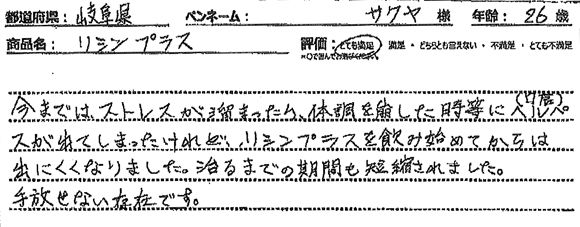 都道府県： 岐阜県 ペンネーム： サクヤ 様 年齢： 26 歳
商品名： リシンプラス 評価： とても満足 満足 ・ どちらとも言えない ・ 不満足 ・ とても不満足
※○で囲んでお選びください。
今までは、ストレスが溜まったら、体調を崩した時等にヘルペ
(口唇)
スが出てしまったけれど、リシンプラスを飲み始めてからは
出にくくなりました。治るまでの期間も短縮されました。
手放せない存在です。